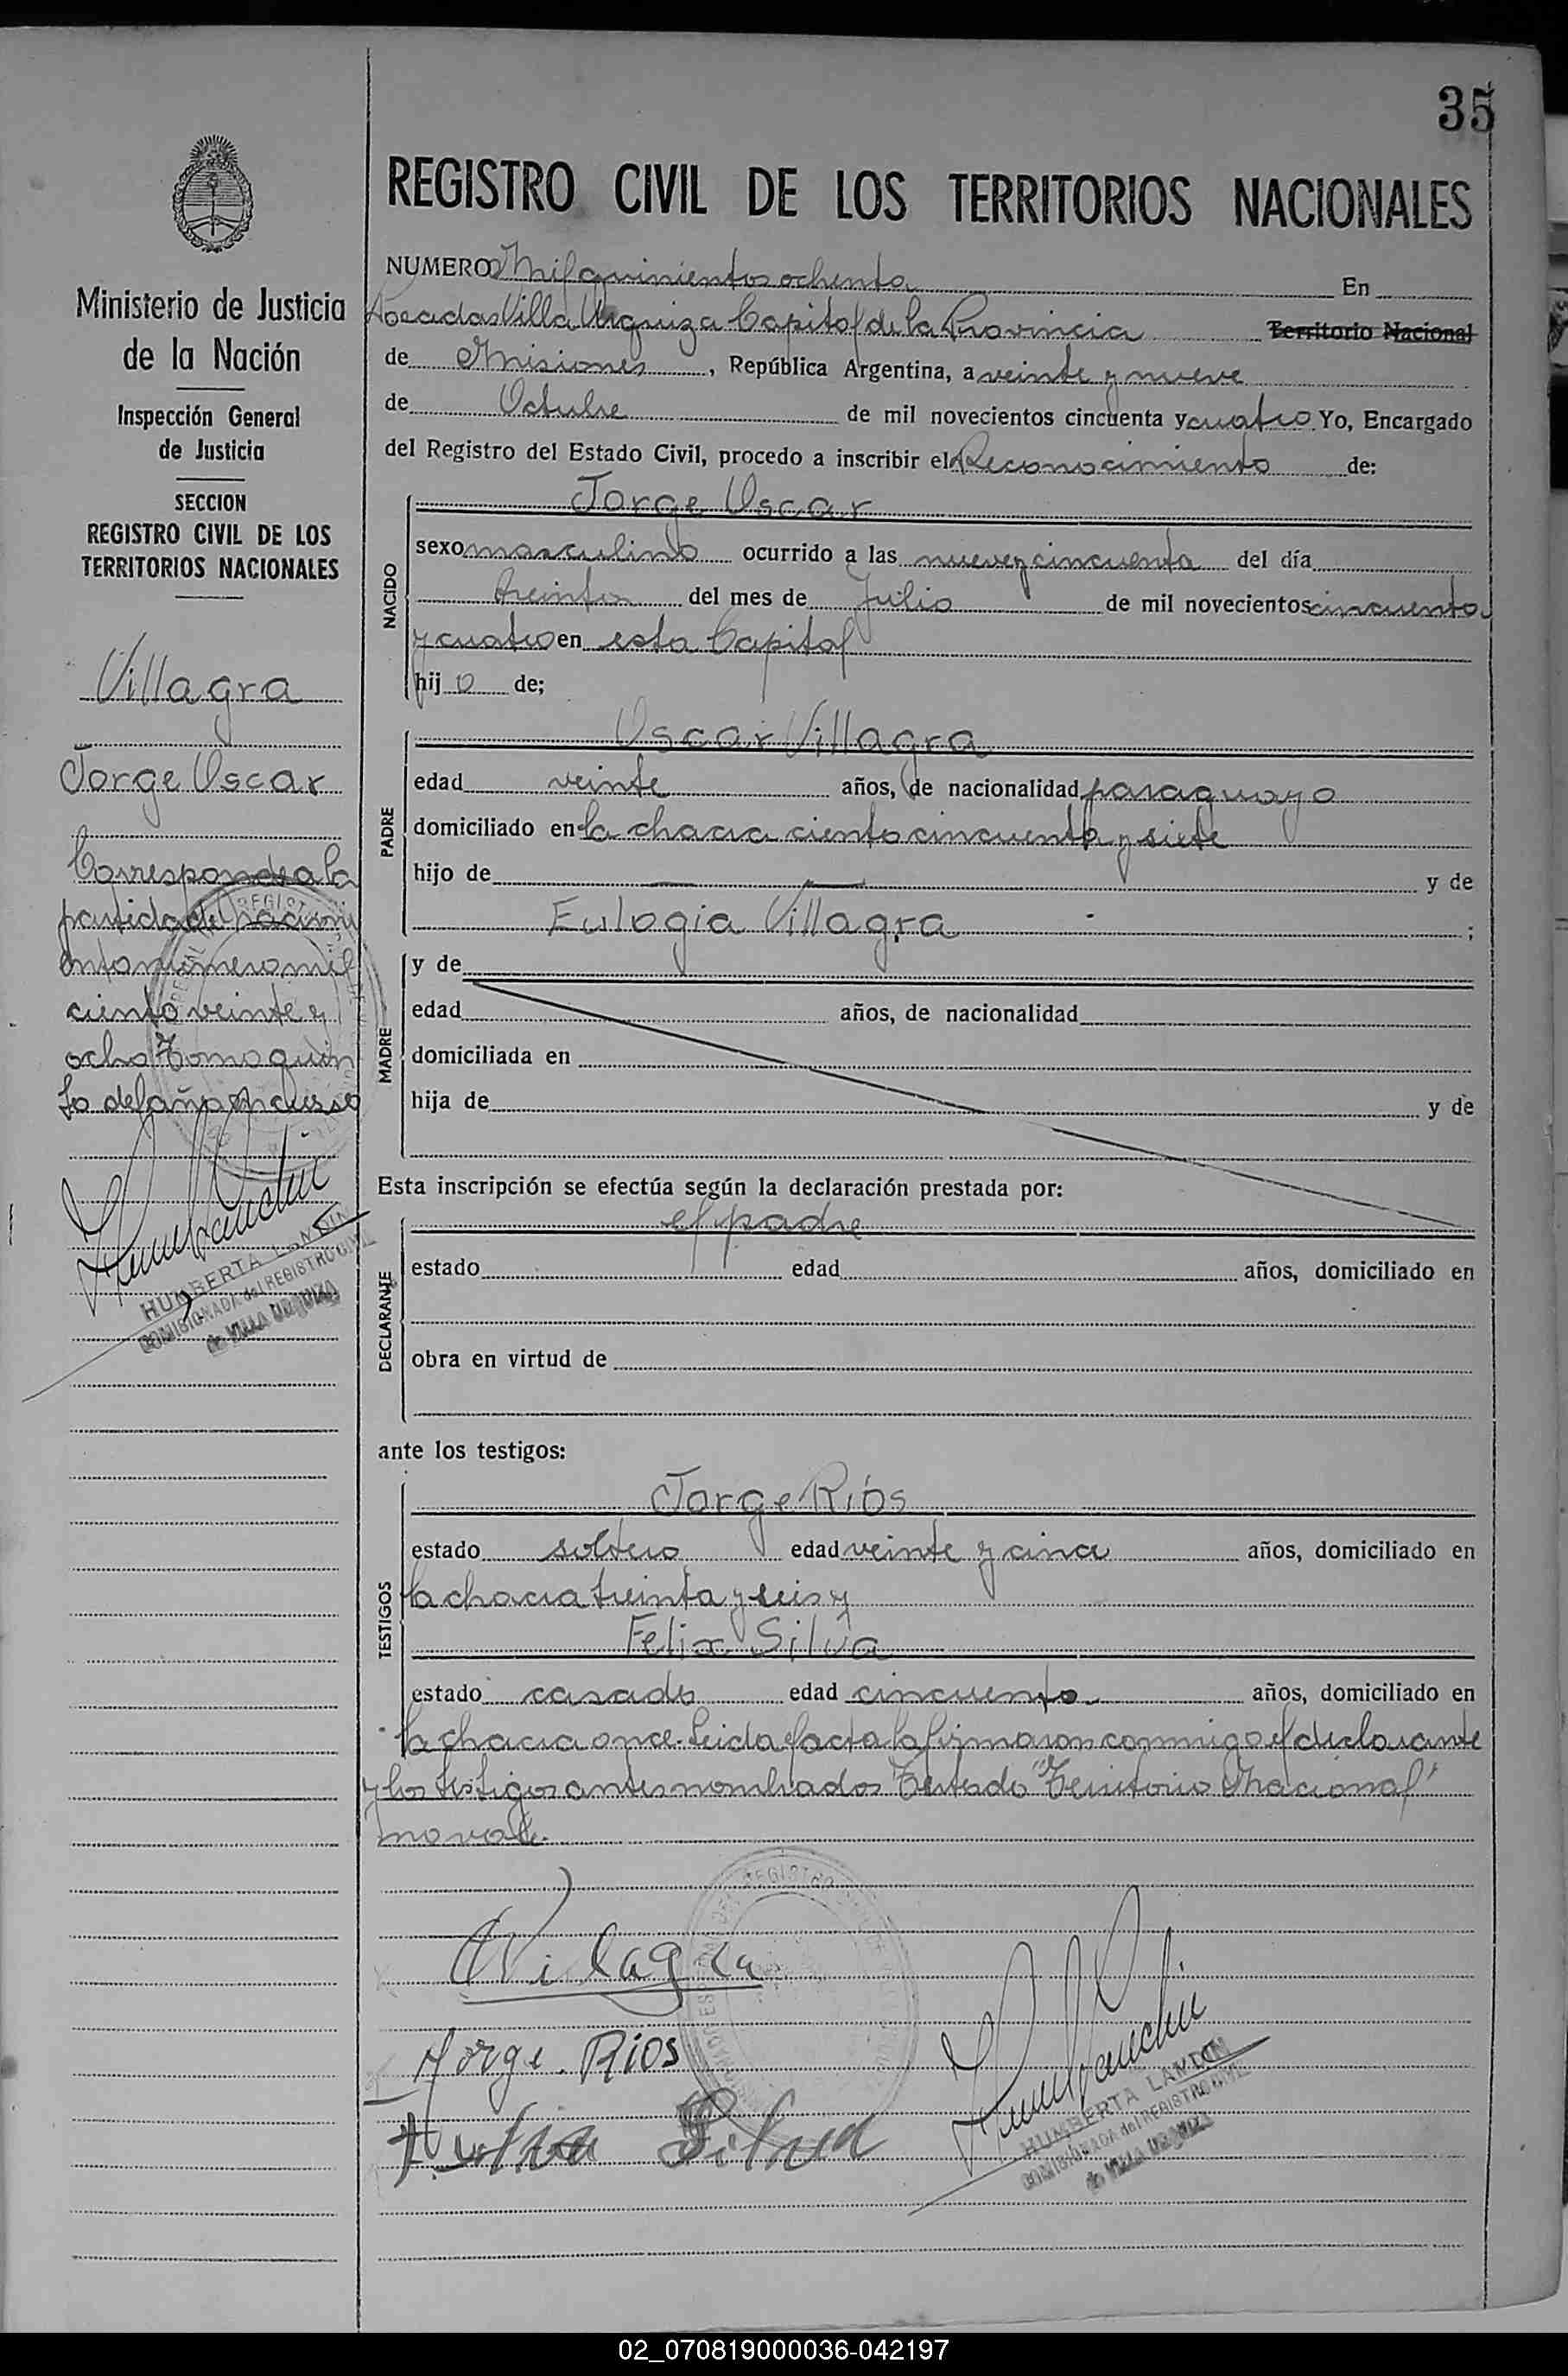 35
REGISTRO CIVIL DE LOS TERRITORIOS NACIONALES
Ministerio de Justicia
de la Nación
Inspección General
de Justicia
SECCION
REGISTRO CIVIL DE LOS
TERRITORIOS NACIONALES
Villagra
Jorge Oscar
Corresponde a la
partida de nacimi
ento número mil
ciento veinte y
ocho Tomo quin
to del año en curso
HUMBERTA LANDIN
COMISIONADA del REGISTRO CIVIL
de VILLA URQUIZA
NUMERO Mil quinientos ochenta En
Posadas Villa Urquiza Capital de la Provincia Territorio Nacional
de Misiones, República Argentina, a veinte y nueve
de Octubre de mil novecientos cincuenta y cuatro Yo, Encargado
del Registro del Estado Civil, procedo a inscribir el Reconocimiento de:
NACIDO
Jorge Oscar
sexo masculino ocurrido a las nueve y cincuenta del día
treinta del mes de Julio de mil novecientos cincuenta
y cuatro en esta Capital
hijo de;
PADRE
Oscar Villagra
edad veinte años, de nacionalidad paraguayo
domiciliado en la chacra ciento cincuenta y siete
hijo de y de
Eulogia Villagra ;
MADRE
y de
edad años, de nacionalidad
domiciliada en
hija de y de
Esta inscripción se efectúa según la declaración prestada por:
DECLARANTE
el padre
estado edad años, domiciliado en
obra en virtud de
ante los testigos:
TESTIGOS
Jorge Ríos
estado soltero edad veinte y cinco años, domiciliado en
la chacra treinta y seis y
Felix Silva
estado casado edad cincuenta años, domiciliado en
la chacra once. Leida el acta la firmaron conmigo el declarante
y los testigos antes nombrados Testado "Territorio Nacional"
no vale.
OVillagra
Jorge. Rios
Felix Silva
HUMBERTA LANDIN
COMISIONADA del REGISTRO CIVIL
de VILLA URQUIZA
02_070819000036-042197